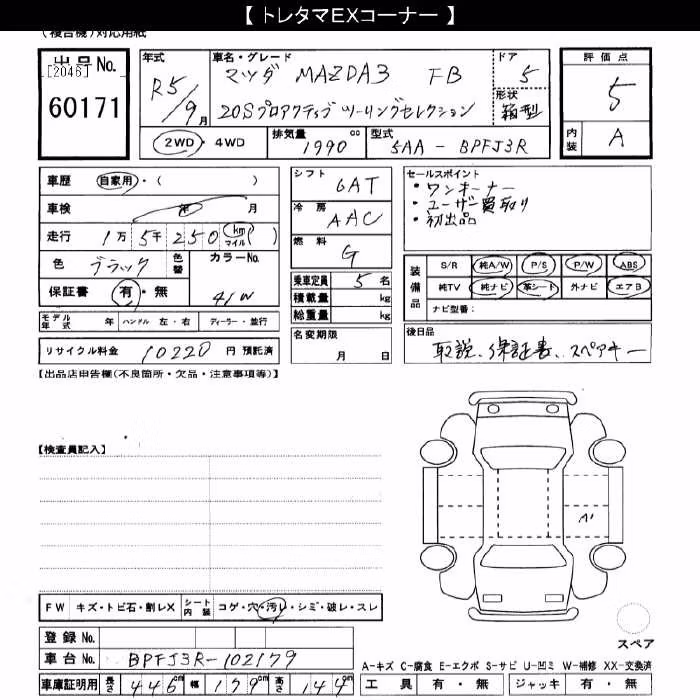 【 トレタマEXコーナー 】
(複合機)対応用紙
出品No.
[2046]
60171
年式
R5/9月
車名・グレード
マツダ MAZDA3 FB
20Sプロアクティブ ツーリングセレクション
ドア
5
形状
箱型
評価点
5
内装
A
2WD・4WD
排気量
1990 cc
型式
5AA-BPFJ3R
車歴 自家用・( )
車検 年 月
走行 1万 5千 250 km マイル ( )
色 ブラック 色替 カラーNo.
41W
保証書 有・無
モデル年式 年 ハンドル 左・右 ディーラー・並行
リサイクル料金 10220 円 預託済
シフト
6AT
冷房
AAC
燃料
G
乗車定員 5 名
積載量 kg
総重量 kg
名変期限
月 日
セールスポイント
・ワンオーナー
・ユーザー買取り
・初出品
装備品
S/R 純A/W P/S P/W ABS
純TV 純ナビ 革シート 外ナビ エアB
ナビ型番:
後日品
取説、保証書、スペアキー
【出品店申告欄(不良箇所・欠品・注意事項等)】
【検査員記入】
A1
FW キズ・トビ石・割レX シート内装 コゲ・穴・汚レ・シミ・破レ・スレ
登録No.
車台No. BPFJ3R-102179
車庫証明用 長さ 446cm 幅 179cm 高さ 144cm
スペア
A-キズ C-腐食 E-エクボ S-サビ U-凹ミ W-補修 XX-交換済
工具 有・無 ジャッキ 有・無